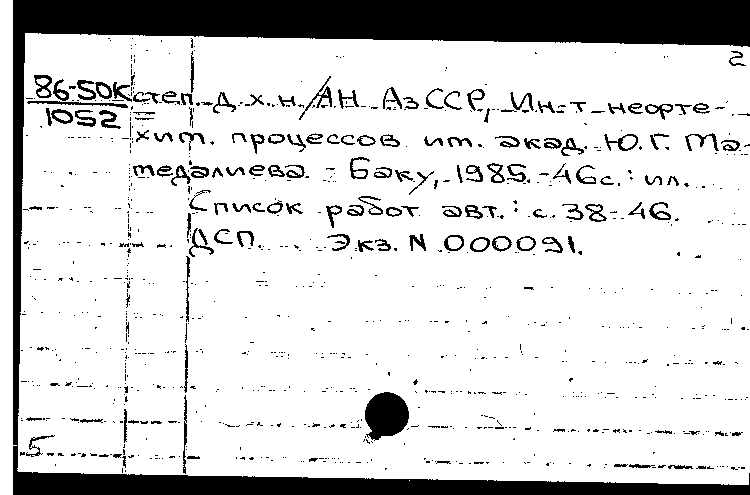 2
86-50К степ. д. х. н./АН АзССР, Ин-т нефте-
1052
хим. процессов им. акад. Ю.Г. Ма-
медалиева. - Баку, 1985. - 46с.: ил.
Список работ авт.: с. 38-46.
ДСП. Экз. N 000091.
5